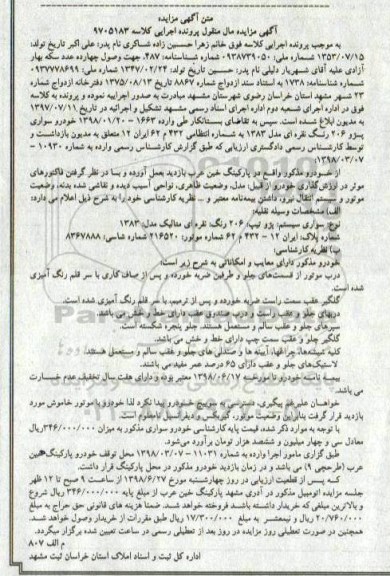 متن آگهی مزایده
آگهی مزایده مال منقول پرونده اجرایی کلاسه ۹۷۰۵۱۸۳
به موجب پرونده اجرایی کلاسه فوق خانم زهرا حسین زاده شاکری نام پدر: علی اکبر تاریخ تولد:
۱۳۵۳/۰۷/۱۵ شماره ملی: ۰۹۳۸۷۳۹۰۵۰ شماره شناسنامه: ۴۸۷، جهت وصول چهارده عدد سکه بهار
آزادی علیه آقای شهریار دلیلی نام پدر: حسین تاریخ تولد: ۱۳۴۷/۰۲/۲۴ شماره ملی: ۰۹۳۷۷۷۸۶۹۹
شماره شناسنامه: ۱۷۳۸ به استناد سند ازدواج شماره ۸۸۶۷ تاریخ ۱۳۷۵/۰۸/۱۳ دفترخانه ازدواج شماره
۲۳ شهر مشهد استان خراسان رضوی شهرستان مشهد مبادرت به صدور اجراییه نموده و پرونده به کلاسه
فوق در اداره اجرای شعبه دوم اداره اجرای اسناد رسمی مشهد تشکیل و اجرائیه در تاریخ ۱۳۹۷/۰۷/۱۱
به مدیون ابلاغ شده است. سپس به تقاضای بستانکار طی وارده ۱۶۶۳ - ۱۳۹۸/۰۱/۲۰ خودرو سواری
پژو ۲۰۶ رنگ نقره ای مدل ۱۳۸۳ به شماره انتظامی ۴۳۲ م ۶۲ ایران ۱۲ متعلق به مدیون بازداشت و
توسط کارشناس رسمی دادگستری ارزیابی که طبق گزارش کارشناس رسمی وارده به شماره ۱۰۹۳۰ -
۱۳۹۸/۰۳/۰۷:
از خودرو مذکور واقع در پارکینگ خین عرب بازدید بعمل آورده و بسا در نظر گرفتن فاکتورهای
موثر در ارزش گذاری خودرو از قبیل: مدل، وضعیت ظاهری، نواحی آسیب دیده و نقاشی شده بدنه، وضعیت
موتور و سیستم انتقال نیرو، داشتن بیمه‌نامه معتبر و ... نظریه کارشناسی خود را به شرح ذیل اعلام می دارد:
الف) مشخصات وسیله نقلیه:
نوع: سواری سیستم: پژو تیپ: ۲۰۶ رنگ: نقره ای متالیک مدل: ۱۳۸۳
شماره پلاک: ایران ۱۲ - ۴۳۲ م ۶۲ شماره موتور: ۲۱۶۵۲۰ شماره شاسی: ۸۳۶۷۸۸۸
ب) نظریه کارشناسی:
خودرو مذکور دارای معایب و امکاناتی به شرح زیر است:
درب موتور از قسمت‌های جلو و طرفین ضربه خورده و پس از صاف کاری با سر قلم رنگ آمیزی
شده است.
گلگیر عقب سمت راست ضربه خورده و پس از ترمیم، با سر قلم رنگ آمیزی شده است.
درب‌های جلو و عقب راست و درب صندوق عقب دارای خط و خش می باشد.
سپرهای جلو و عقب سالم و مستعمل هستند. جلو پنجره شکسته است.
گلگیر جلو و عقب سمت چپ دارای خط و خش می باشد.
کلیه شیشه‌ها، چراغها، آیینه ها و صندلی های جلو و عقب سالم و مستعمل هستند.
لاستیک‌های جلو و عقب دارای ۶۵ درصد عمر مفید می باشند.
بیمه نامه خودرو تا مورخه ۱۳۹۸/۰۶/۱۷ معتبر بوده و دارای هفت سال تخفیف عدم خسارت
می باشد.
خواهان علیرغم پیگیری، دسترسی به سوییچ خودرو پیدا نکرد لذا خودرو با موتور خاموش مورد
بازدید قرار گرفت بنابراین وضعیت موتور، گیربکس و دیفرانسیل نامعلوم است.
با توجه به موارد ذکر شده، قیمت پایه کارشناسی خودرو سواری مذکور به میزان ۳۴۶/۰۰۰/۰۰۰ریال
معادل سی و چهار میلیون و ششصد هزار تومان برآورد می‌شود.
طبق گزارش مامور اجرا وارده به شماره ۱۱۰۳۱ - ۱۳۹۸/۰۳/۰۷ محل توقف خودرو پارکینگ خین
عرب (طرحچی ۹) می باشد و در زمان بازدید خودرو مذکور در محل پارکینگ قرار داشت.
کـه پـس از قطعیت ارزیابی در روز چهارشنبه مورخ ۱۳۹۸/۶/۲۷ از ساعت ۹ صبح تا ۱۲ ظهر
جلسه مزایده اتومبیل مذکور در آدری مشهد پارکینگ خین عرب از مبلغ پایه ۳۴۶/۰۰۰/۰۰۰ ریال شروع
و بالاترین مبلغی که خریدار داشته باشد فروخته خواهد شد. ضمنا هزینه های قانونی حق حراج به مبلغ
۲۰/۷۶۰/۰۰۰ ریال و نیمعشر به مبلغ ۱۷/۳۰۰/۰۰۰ ریال طبق مقررات از خریدار وصول خواهد شد.
همچنین در صورت تعطیلی روز مزایده در روز بعد از تعطیلی رسمی در ساعت تعیین شده برگزار میگردد.
م الف ۸۰۷
اداره کل ثبت و اسناد املاک استان خراسان ثبت مشهد